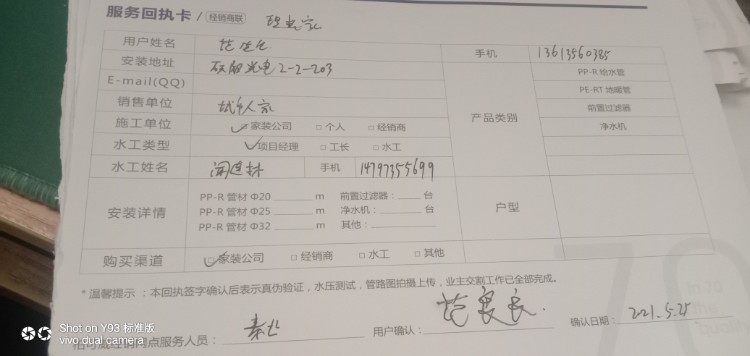 服务回执卡 / 经销商联
用户姓名 手机 13613560385
安装地址 2-2-203 PP-R 给水管
E-mail(QQ) PE-RT 地暖管
销售单位 城市人家 产品类别 前置过滤器
施工单位 ✓家装公司 □ 个人 □ 经销商 净水机
水工类型 ✓项目经理 □ 工长 □ 水工
水工姓名 手机 14797355699
PP-R 管材 Φ20 m 前置过滤器: 台
安装详情 PP-R 管材 Φ25 m 净水机: 台 户型
PP-R 管材 Φ32 m 其他:
购买渠道 ✓家装公司 □ 经销商 □ 水工 □ 其他
* 温馨提示:本回执签字确认后表示真伪验证,水压测试,管路图拍摄上传,业主交割工作已全部完成。
服务人员: 用户确认: 范良良 确认日期: 2021.5.25
Shot on Y93 标准版
vivo dual camera